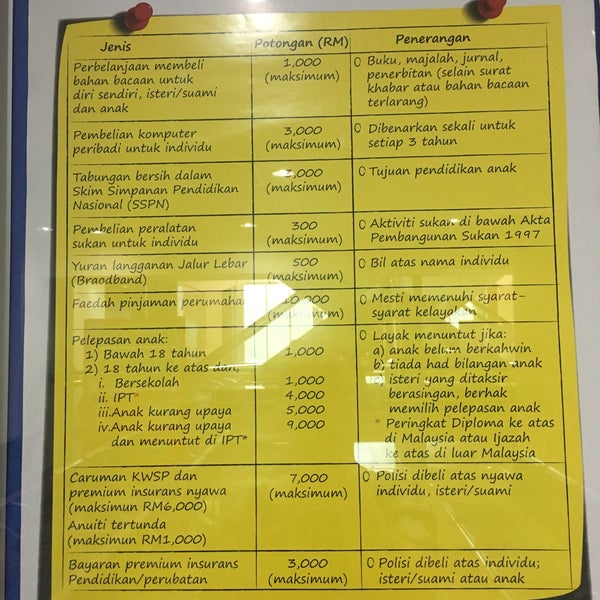 Jenis Potongan (RM) Penerangan
Perbelanjaan membeli 1,000 O Buku, majalah, jurnal,
bahan bacaan untuk (maksimum) penerbitan (selain surat
diri sendiri, isteri/suami khabar atau bahan bacaan
dan anak terlarang)
Pembelian komputer 3,000 O Dibenarkan sekali untuk
peribadi untuk individu (maksimum) setiap 3 tahun
Tabungan bersih dalam O Tujuan pendidikan anak
Skim Simpanan Pendidikan (maksimum)
Nasional (SSPN)
Pembelian peralatan 300 O Aktiviti sukan di bawah Akta
sukan untuk individu (maksimum) Pembangunan Sukan 1997
Yuran langganan Jalur Lebar 500 O Bil atas nama individu
(Braodband) (maksimum)
Faedah pinjaman perumahan 10,000 O Mesti memenuhi syarat-
(maksimum) syarat kelayakan
Pelepasan anak: O Layak menuntut jika:
1) Bawah 18 tahun 1,000 a) anak belum berkahwin
2) 18 tahun ke atas dan, b) tiada had bilangan anak
i. Bersekolah 1,000 c) isteri yang ditaksir
ii. IPT* 4,000 berasingan, berhak
iii.Anak kurang upaya 5,000 memilih pelepasan anak
iv.Anak kurang upaya 9,000 * Peringkat Diploma ke atas
dan menuntut di IPT* di Malaysia atau Ijazah
ke atas di luar Malaysia
Caruman KWSP dan 7,000 O Polisi dibeli atas nyawa
premium insurans nyawa (maksimum) individu, isteri/suami
(maksimum RM6,000)
Anuiti tertunda
(maksimum RM1,000)
Bayaran premium insurans 3,000 O Polisi dibeli atas individu;
Pendidikan/perubatan (maksimum) isteri/suami atau anak